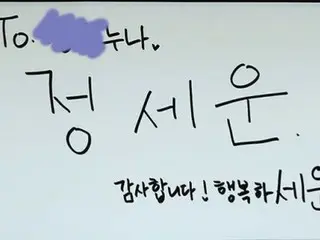 To. 누나♥
정세운.
감사합니다! 행복하세운